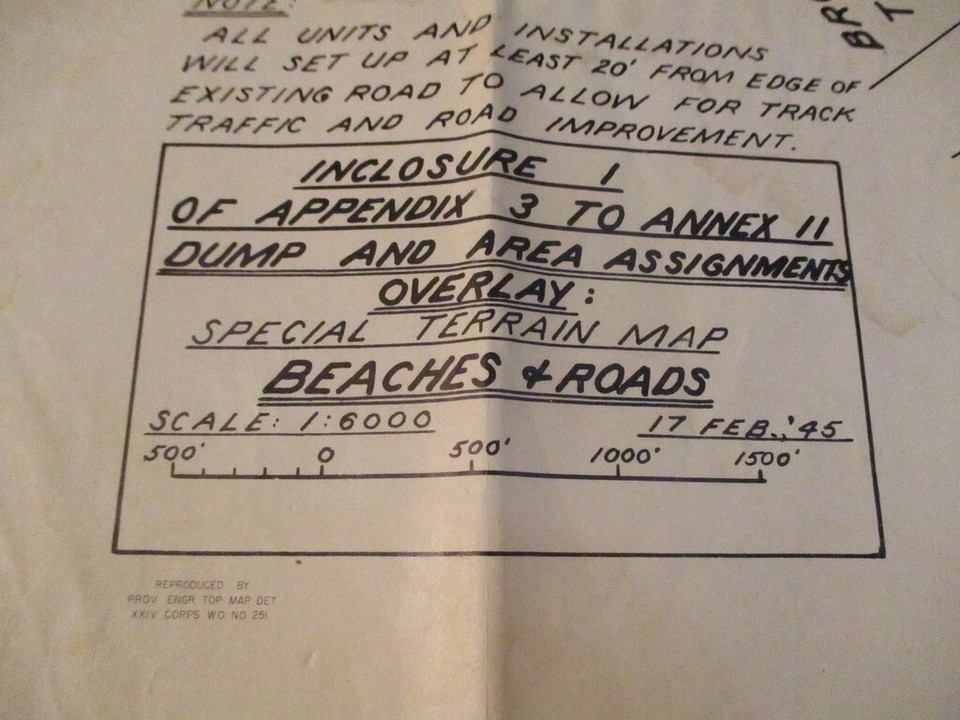 NOTE:
ALL UNITS AND INSTALLATIONS
WILL SET UP AT LEAST 20' FROM EDGE OF
EXISTING ROAD TO ALLOW FOR TRACK
TRAFFIC AND ROAD IMPROVEMENT.
INCLOSURE 1
OF APPENDIX 3 TO ANNEX 11
DUMP AND AREA ASSIGNMENTS
OVERLAY:
SPECIAL TERRAIN MAP
BEACHES & ROADS
SCALE: 1:6000 17 FEB., '45
500' 0 500' 1000' 1500'
REPRODUCED BY
PROV ENGR TOP MAP DET
XXIV CORPS W O NO 251